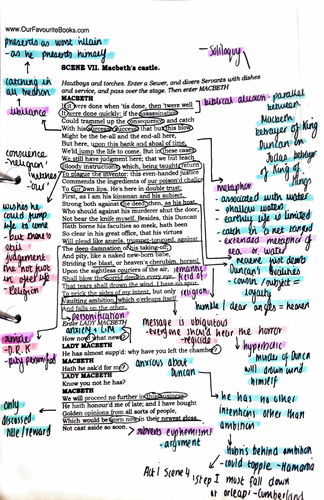 www.OurFavouriteBooks.com
presents as worse villain
- as he presents himself
soliloquy
SCENE VII. Macbeth's castle.
Hautboys and torches. Enter a Sewer, and divers Servants with dishes
and service, and pass over the stage. Then enter MACBETH
catching in
all hedron
sibilance
MACBETH
If it were done when 'tis done, then 'twere well
It were done quickly: if the assassination
Could trammel up the consequence, and catch
With his surcease success; that but this blow
Might be the be-all and the end-all here,
But here, upon this bank and shoal of time,
We'ld jump the life to come. But in these cases
We still have judgement here; that we but teach
Bloody instructions, which, being taught, return
To plague the inventor: this even-handed justice
Commends the ingredients of our poison'd chalice
To our own lips. He's here in double trust;
First, as I am his kinsman and his subject,
Strong both against the deed; then, as his host,
Who should against his murderer shut the door,
Not bear the knife myself. Besides, this Duncan
Hath borne his faculties so meek, hath been
So clear in his great office, that his virtues
Will plead like angels, trumpet-tongued, against
The deep damnation of his taking-off;
And pity, like a naked new-born babe,
Striding the blast, or heaven's cherubim, horsed
Upon the sightless couriers of the air,
Shall blow the horrid deed in every eye,
That tears shall drown the wind. I have no spur
To prick the sides of my intent, but only
Vaulting ambition, which o'erleaps itself
And falls on the other.
biblical allusion - parallel
between
Macbeth
betrayal of King
Duncan and
Judas betrayal
of King of
Kings
conscience
- religion
wishes he
could jump
life to come
- but there's
still
judgement
- Religion
metaphor
- associated with water
- shallow water
- earthly life is limited
- catch in a net
- extended metaphor of
sea or water
Duncan's
- cousin/subject =
loyalty
semantic
field of
religion
humble/dear angels = heaven
personification
Enter LADY MACBETH
How now! what news?
LADY MACBETH
He has almost supp'd: why have you left the chamber?
MACBETH
Hath he ask'd for me?
LADY MACBETH
Know you not he has?
MACBETH
We will proceed no further in this business:
He hath honour'd me of late; and I have bought
Golden opinions from all sorts of people,
Which would be worn now in their newest gloss,
Not cast aside so soon.
message is ubiquitous
- everyone should hear the horror
- regicide
hyperbolic
- murder of Duncan
will drown wind
himself
anxious about
Duncan
he has no other
intentions other than
ambition
only
discussed
subverts euphemisms
- argument
hubris behind ambition
- could topple - Hamartia
Act 1 Scene 4, 'step I must fall down
or o'erleap' - Cumberland